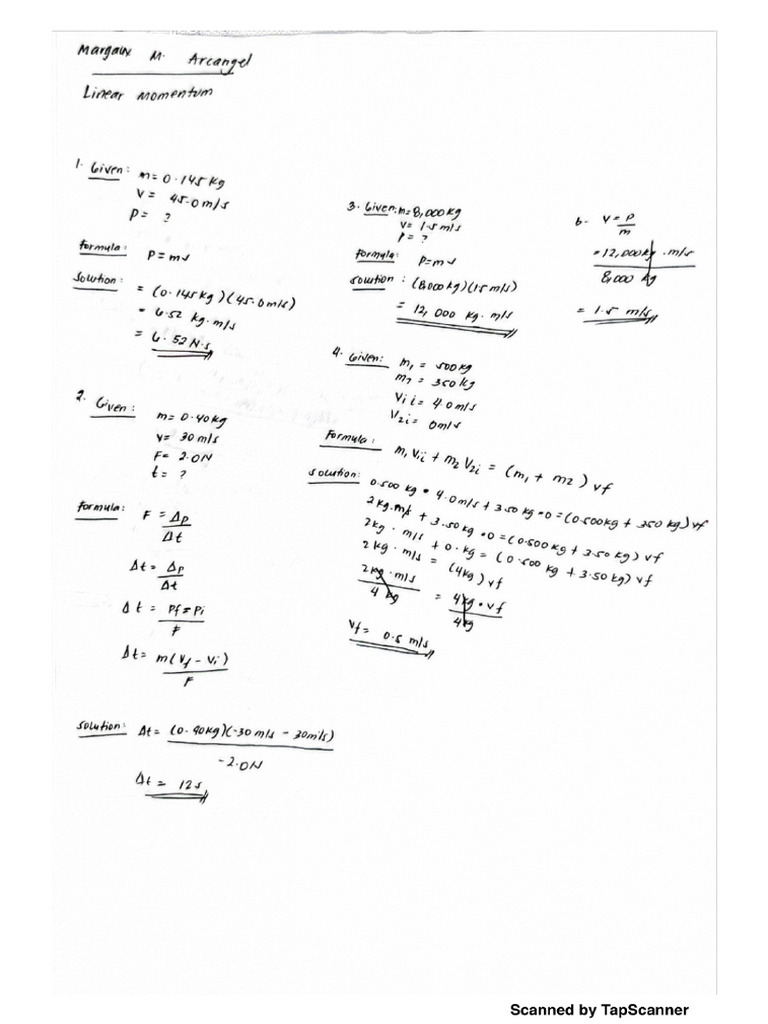 Margaux M. Arcangel
Linear Momentum
1. Given: m= 0.145 kg
V = 45.0 m/s
P = ?
Formula: P = mv
Solution: = (0.145 kg)(45.0 m/s)
= 6.52 kg.m/s
= 6.52 N.s
2. Given: m= 0.40 kg
V= 30 m/s
F= 2.0N
t = ?
Formula: F = Δp
Δt
Δt = Δp
Δt
Δt = Pf = Pi
F
Δt = m(Vf - Vi)
F
Solution: Δt = (0.40kg)(-30 m/s - 30m/s)
-2.0N
Δt = 12s
3. Given: m= 8,000 kg
V= 1.5 m/s
P= ?
Formula: P=mv
Solution: (8,000 kg)(1.5 m/s)
= 12,000 kg. m/s
4. Given: m1 = 500 kg
m2 = 350 kg
V1i = 4.0 m/s
V2i = 0 m/s
Formula: m1 V1i + m2 V2i = (m1 + m2) vf
Solution: 0.500 kg • 4.0 m/s + 3.50 kg • 0 = (0.500kg + 350 kg) vf
2kg.m/s + 3.50 kg • 0 = (0.500 kg + 3.50 kg) vf
2kg . m/s + 0 . kg = (0.500 kg + 3.50 kg) vf
2 kg . m/s = (4kg) vf
2kg . m/s = 4kg • vf
4 kg 4kg
Vf = 0.5 m/s
b. V = P
m
= 12,000 kg . m/s
8,000 kg
= 1.5 m/s
Scanned by TapScanner